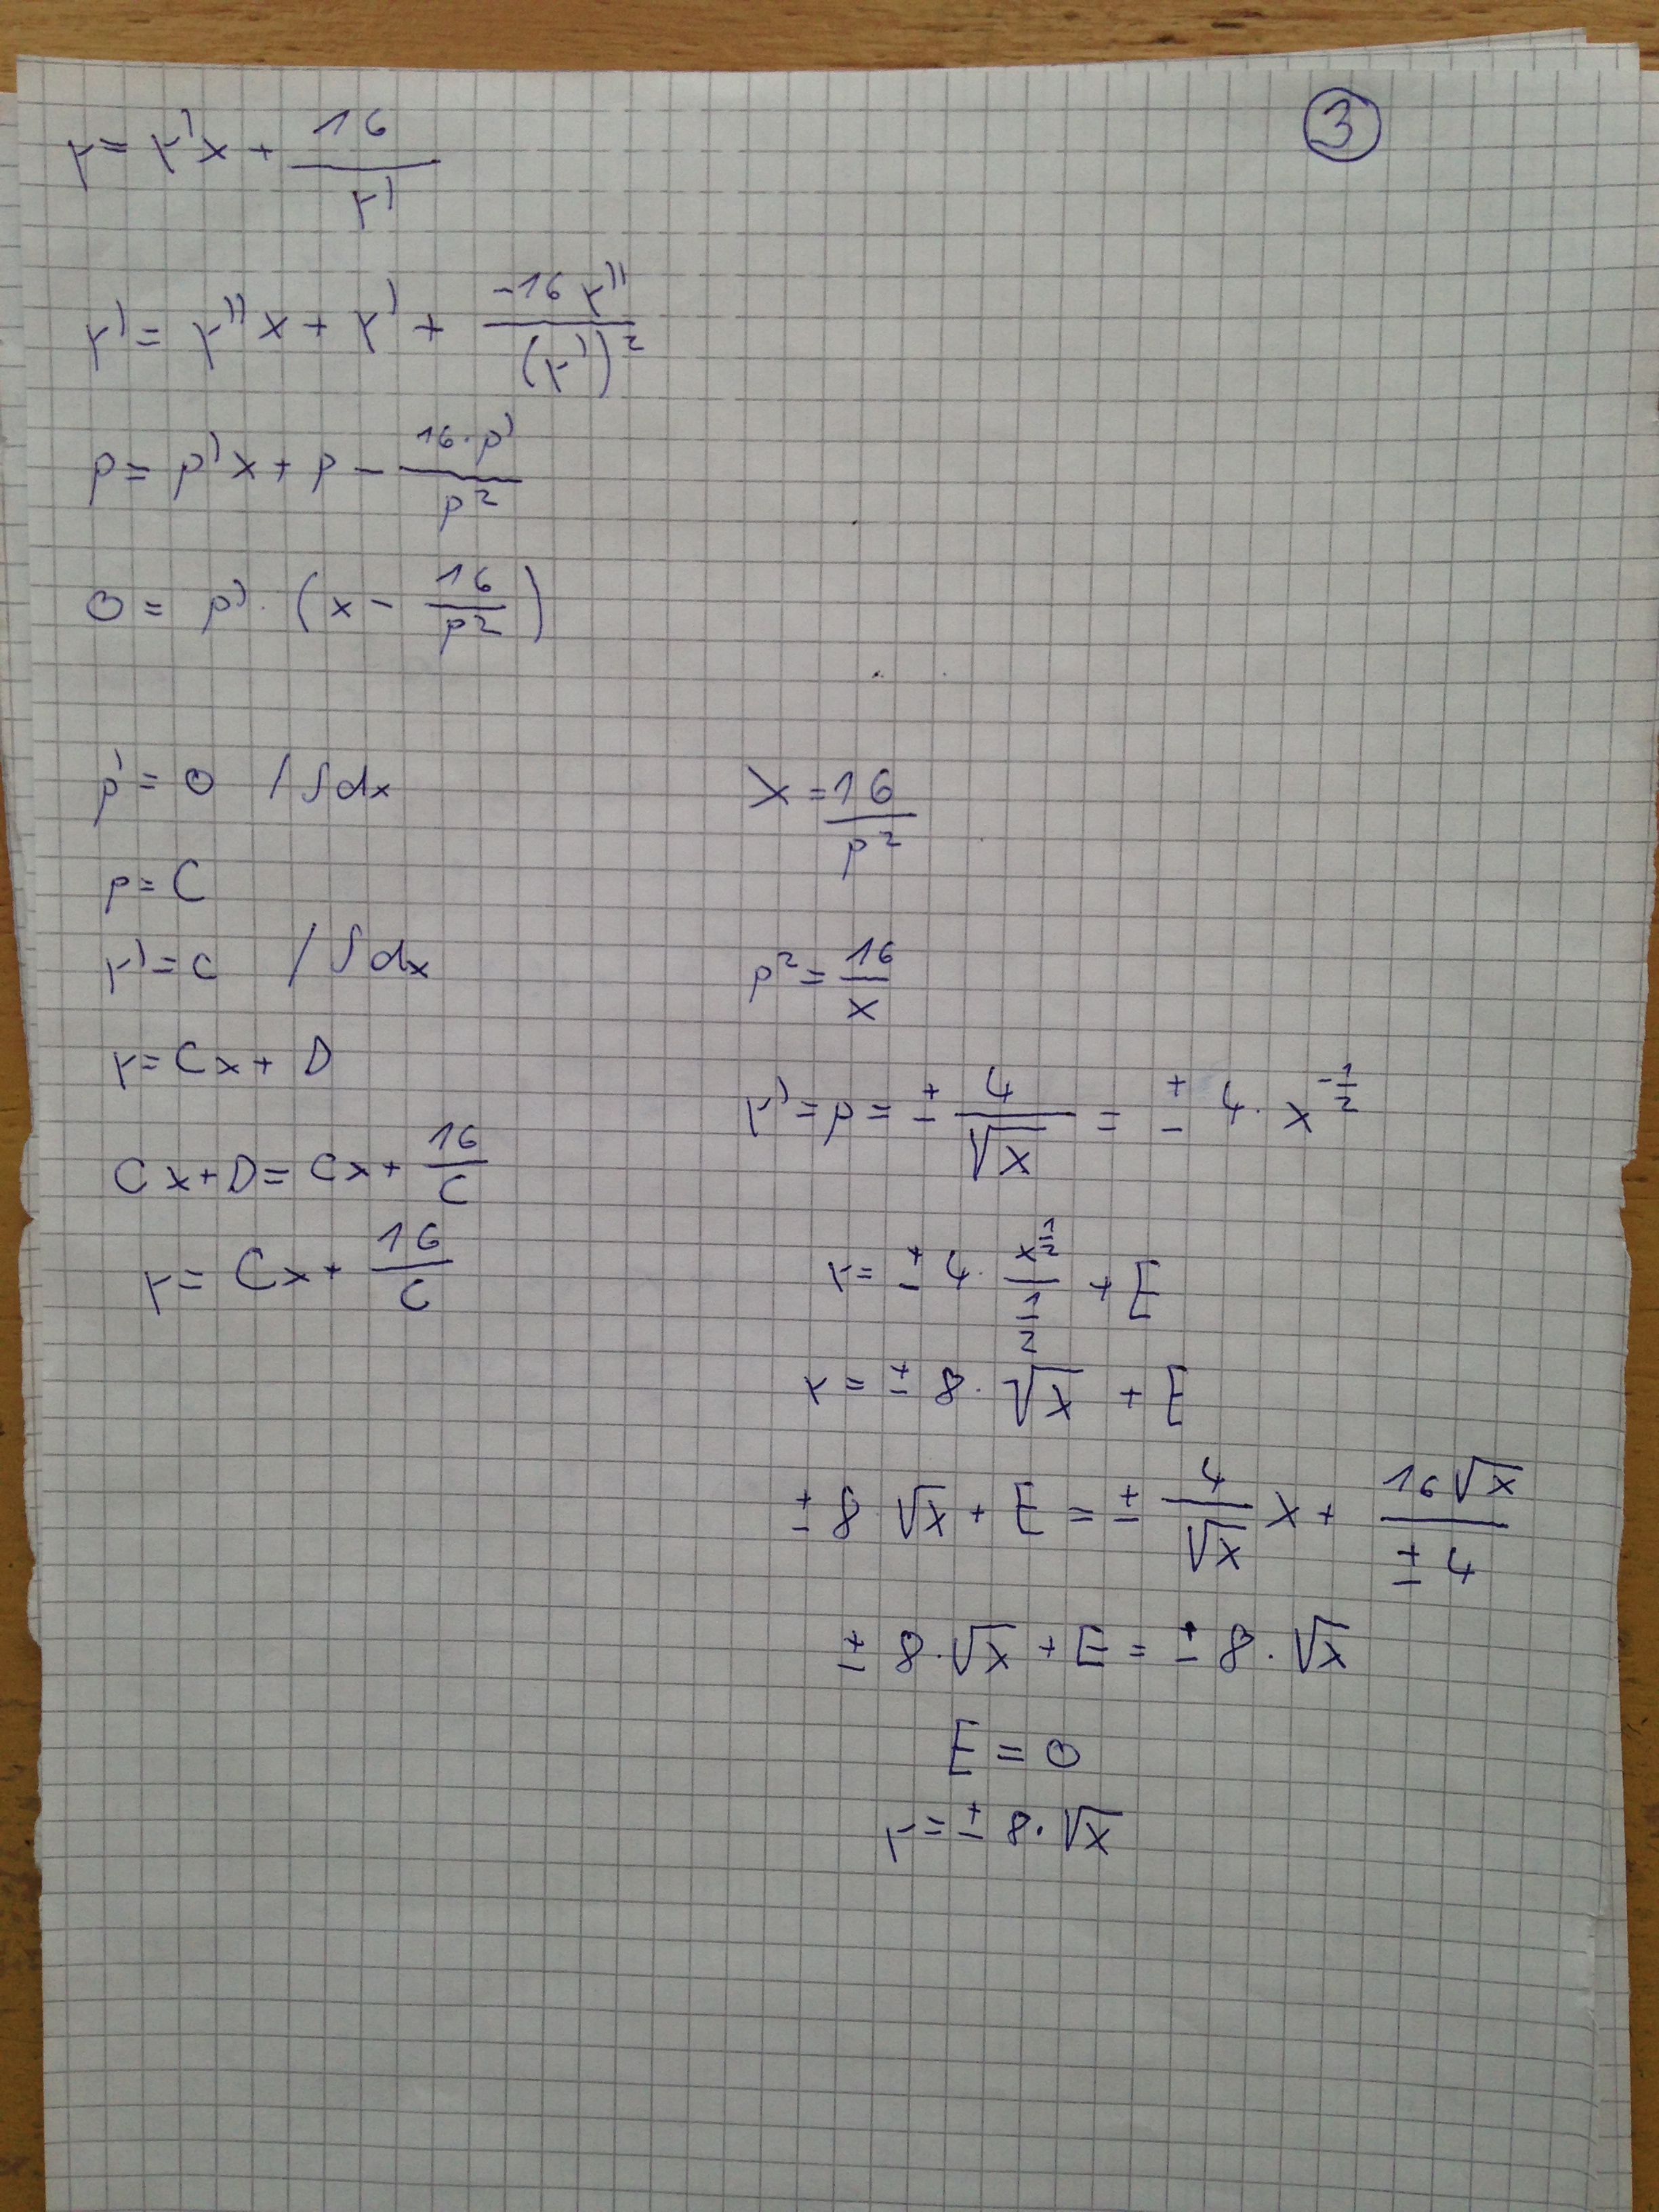 ③
y = y'x + 16/y'
y' = y''x + y' + -16y''/(y')²
p = p'x + p - 16·p'/p²
0 = p'·(x - 16/p²)
p' = 0 /∫dx
p = C
y' = c /∫dx
y = Cx + D
Cx + D = Cx + 16/C
y = Cx + 16/C
x = 16/p²
p² = 16/x
y' = p = ± 4/√x = ± 4·x^(-1/2)
y = ± 4·x^(1/2)/(1/2) + E
y = ± 8·√x + E
± 8 √x + E = ± 4/√x x + 16√x/±4
± 8·√x + E = ± 8·√x
E = 0
y = ± 8·√x